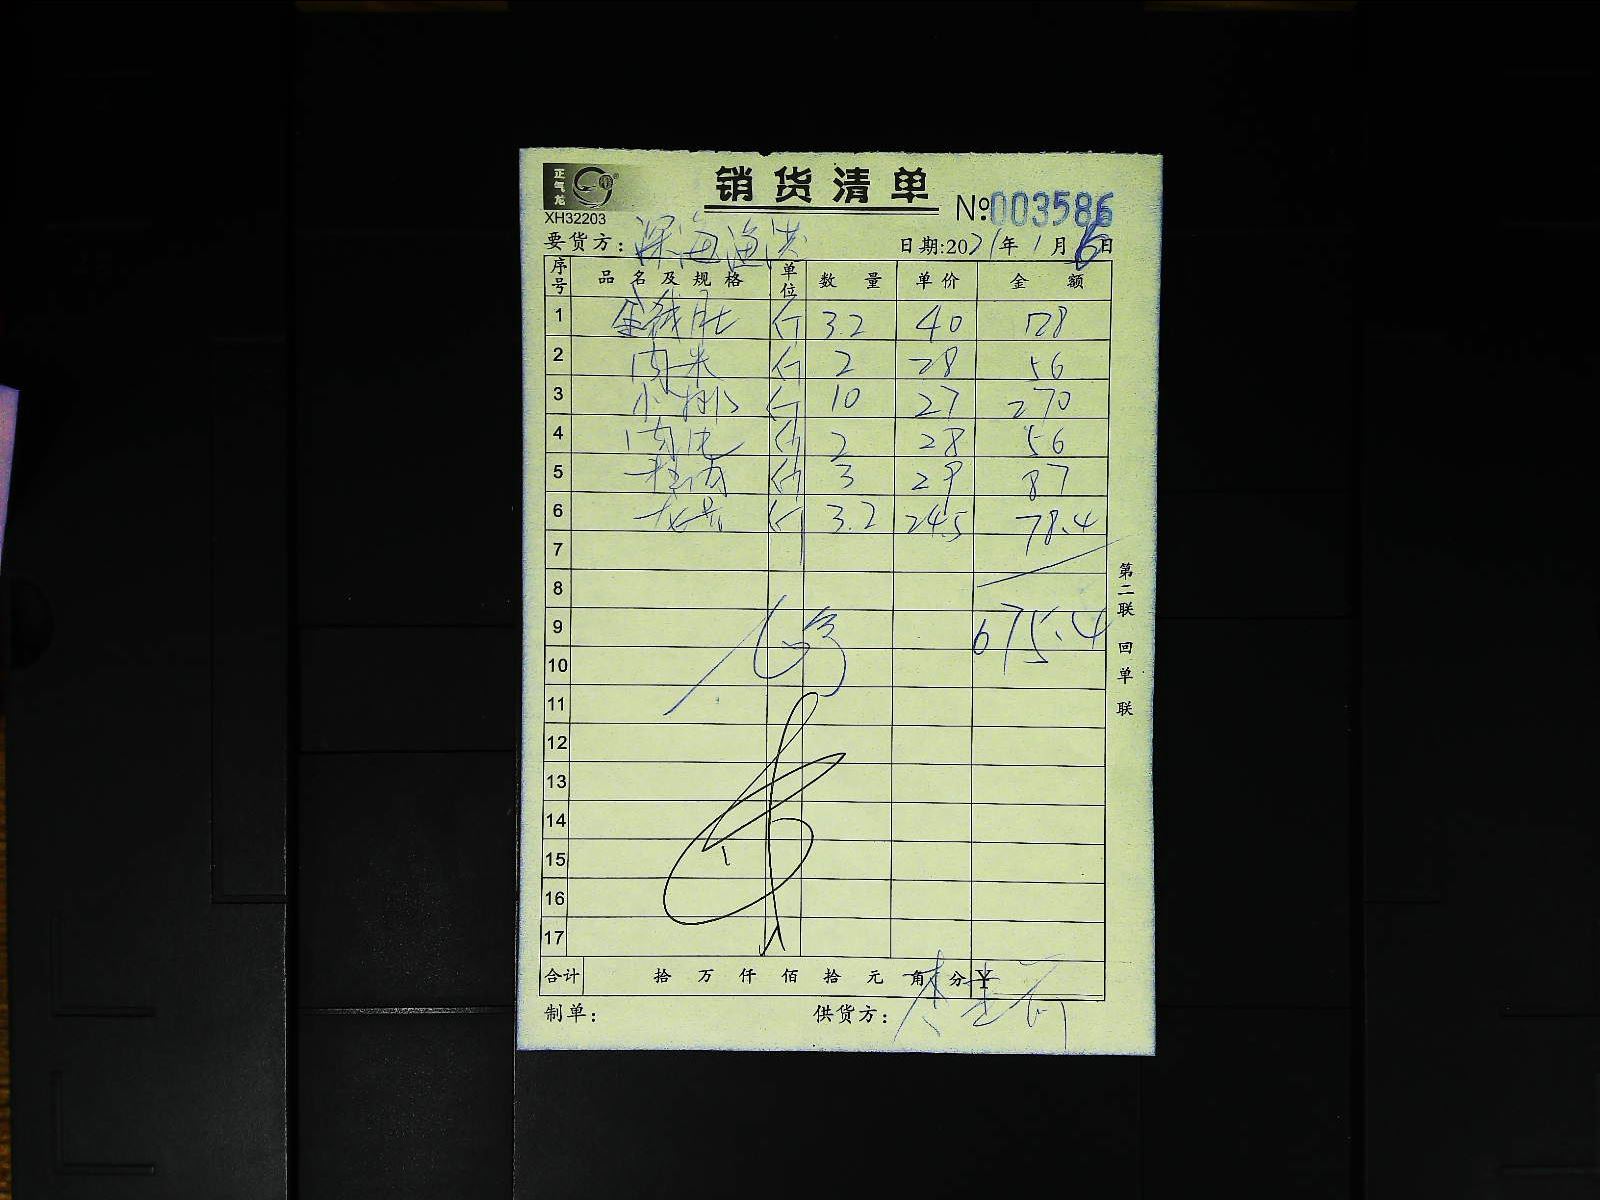 正气龙
销货清单
XH32203
№:003586
要货方: 深海渔港 日期:2021年1月6日
序号 品名及规格 单位 数量 单价 金额
1 金钱肚 斤 3.2 40 128
2 肉米 斤 2 28 56
3 小排 斤 10 27 270
4 斤 2 28 56
5 斤 3 29 87
6 斤 3.2 24.5 78.4
7
8
9 675.4
10
11
12
13
14
15
16
17
合计 拾 万 仟 佰 拾 元 角 分 ¥
制单: 供货方:
第二联 回单联